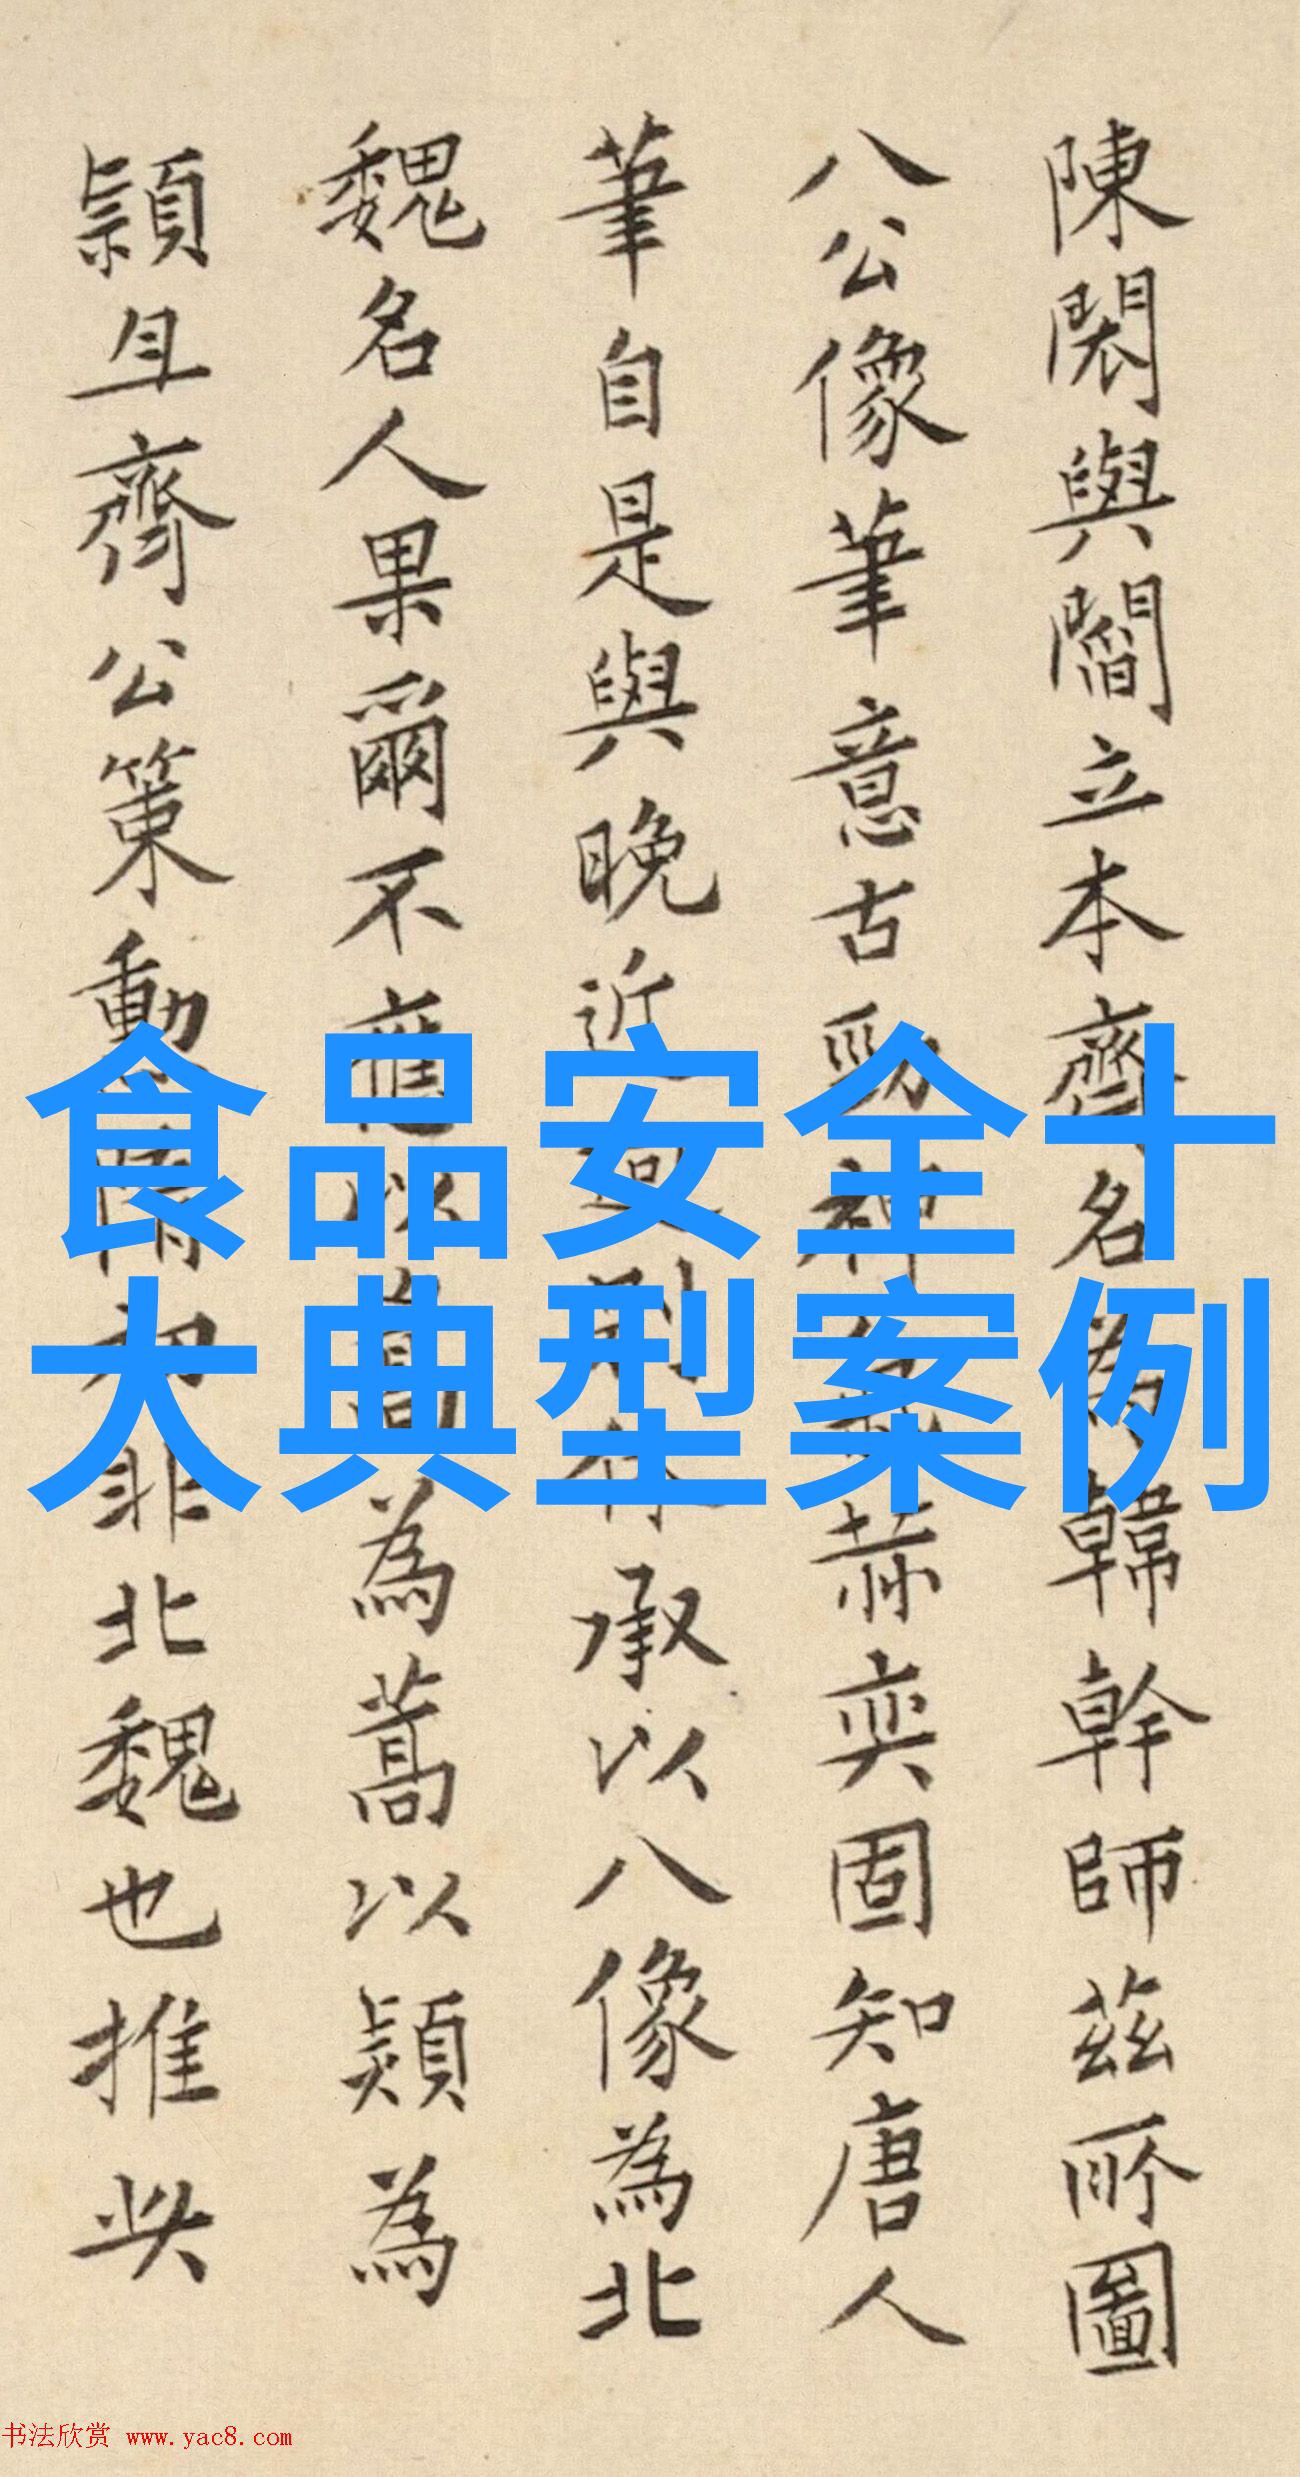 陳閎與閻立本齊名為韓幹師茲所圖
八公像筆意古勁神赫奕固知唐人
筆自是與晚近迥別承以八像為北
魏名人果爾不應以為蒿以潁為
潁且齊公策動隋初非北魏也推此
食品安全十
大典型案例
书法欣赏 www.yac8.com